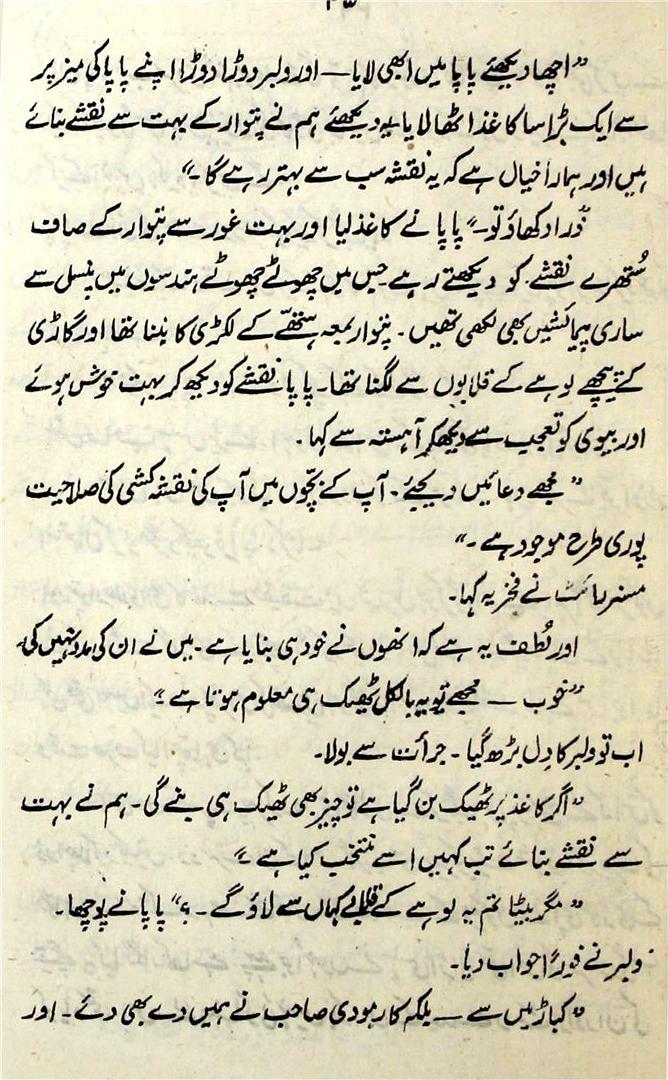 "اچھا دیکھئے پاپا میں ابھی لایا — اور ولبر دوڑا دوڑا اپنے پاپا کی میز پر
سے ایک بڑا سا کاغذ اٹھا لایا یہ دیکھئے ہم نے پتوار کے بہت سے نقشے بنائے
ہیں اور ہمارا خیال ہے کہ یہ نقشہ سب سے بہتر رہے گا۔"
"ذرا دکھاؤ تو۔" پاپا نے کاغذ لیا اور بہت غور سے پتوار کے صاف
ستھرے نقشے کو دیکھتے رہے جس میں چھوٹے چھوٹے ہندسوں میں پنسل سے
ساری پیمائشیں بھی لکھی تھیں۔ پتوار بمعہ ہتھے کے لکڑی کا بننا تھا اور گاڑی
کے پیچھے لوہے کے قلابوں سے لگنا تھا۔ پاپا نقشے کو دیکھ کر بہت خوش ہوئے
اور بیوی کو تعجب سے دیکھ کر آہستہ سے کہا۔
"مجھے دعائیں دیجئے۔ آپ کے بچّوں میں آپ کی نقشہ کشی کی صلاحیت
پوری طرح موجود ہے۔"
مسز رائٹ نے فخریہ کہا۔
اور لُطف یہ ہے کہ انھوں نے خود ہی بنایا ہے۔ میں نے ان کی مدد نہیں کی۔
"خوب — مجھے تو یہ بالکل ٹھیک ہی معلوم ہوتا ہے"
اب تو ولبر کا دِل بڑھ گیا۔ جرأت سے بولا۔
"اگر کاغذ پر ٹھیک بن گیا ہے تو چیز بھی ٹھیک ہی بنے گی۔ ہم نے بہت
سے نقشے بنائے تب کہیں اسے منتخب کیا ہے"
"مگر بیٹا تم یہ لوہے کے قلابے کہاں سے لاؤ گے۔؟" پاپا نے پوچھا۔
ولبر نے فوراً جواب دیا۔
"کباڑ میں سے — بلکہ کارمودی صاحب نے ہمیں دے بھی دئے۔ اور